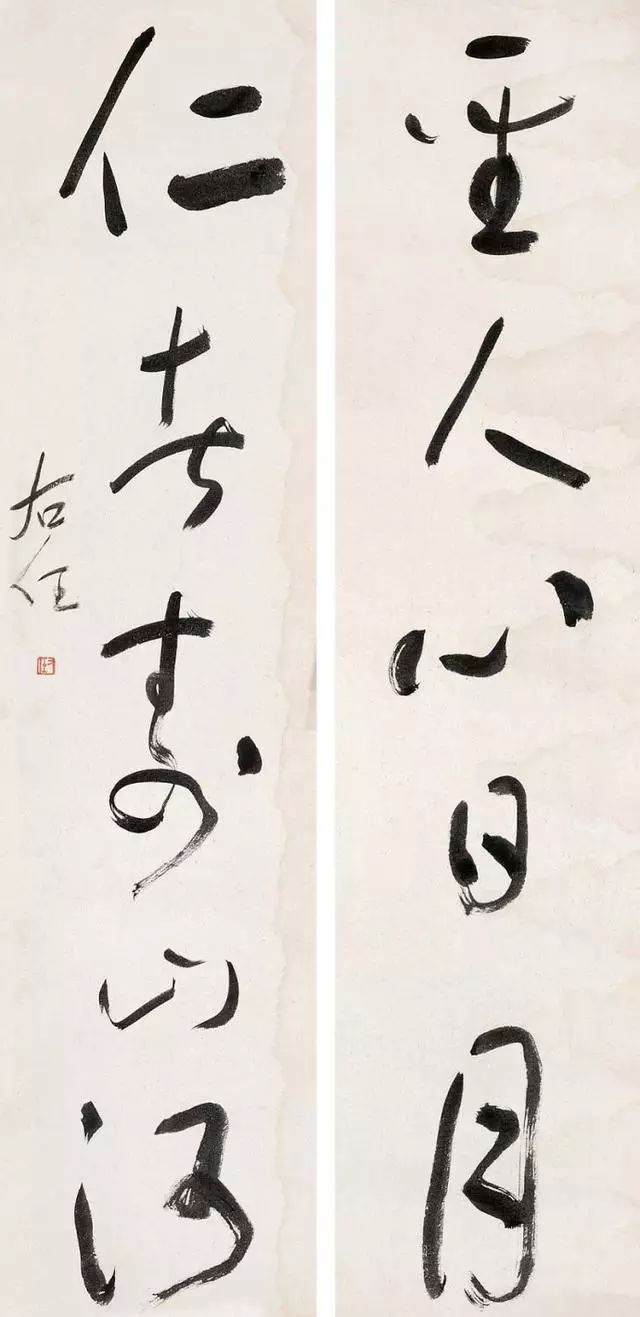 聖人心日月
仁者壽山河
右任